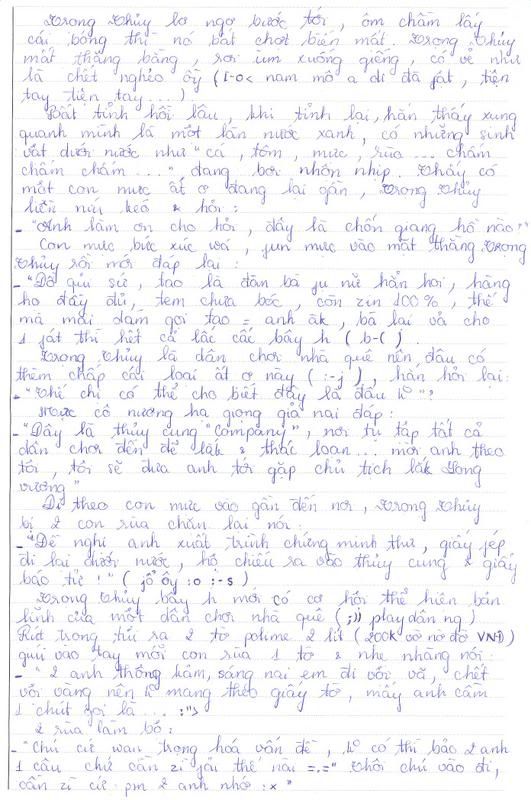 Trọng Thủy lơ ngơ bước tới, ôm chầm lấy
cái bóng thì nó bất chợt biến mất. Trọng Thủy
mất thăng bằng, rơi ùm xuống giếng, có vẻ như
là chết nghẻo òy (T-O< nam mô a di đà fật, tiện
tay tiện tay...)
Bất tỉnh hồi lâu, khi tỉnh lại, hắn thấy xung
quanh mình là một làn nước xanh, có những sinh
vật dưới nước như "cá, tôm, mực, rùa ... chấm
chấm chấm ...", đang bơi nhộn nhịp. Thấy có
một con mực ất ơ đang lại gần, Trọng Thủy
liền níu kéo & hỏi:
- "Anh làm ơn cho hỏi, đây là chốn giang hồ nào?"
Con mực bức xúc wá, fun mực vào mặt thằng Trọng
Thủy rồi mới đáp lại:
- "Đồ quỉ sứ, tao là đàn bà fụ nữ hẳn hoi, hàng
họ đầy đủ, tem chưa bóc, còn zin 100%, thế
mà mài dám gọi tao = anh àk, bà lại vả cho
1 fát thì hết cả lấc cấc bây h (b-( )
Trọng Thủy là dân chơi nhà quê nên đâu có
thèm chấp cái loại ất ơ này ( :-j ), hắn hỏi lại:
- "Thế chị có thể cho biết đây là đâu k0"?
Mực cô nương hạ giọng giả nai đáp:
- "Đây là thủy cung "Company", nơi tụ tập tất cả
dân chơi đến để lắk & thác loạn... mời anh theo
tôi, tôi sẽ đưa anh tới gặp chủ tịch lắk Long
vương"
Đi theo con mực vào gần đến nơi, Trọng Thủy
bị 2 con rùa chặn lại nói:
- "Đề nghị anh xuất trình chứng minh thư, giấy fép
đi lại dưới nước, hộ chiếu ra vào thủy cung & giấy
báo tử!" ( jồ ôy :o :-s )
Trọng Thủy bây h mới có cơ hội thể hiện bản
lĩnh của một dân chơi nhà quê ( ;)) playdân ng )
Rút trong túi ra 2 tờ polime 2 lít (200k vờ nờ đờ VNĐ)
gúi vào tay mỗi con rùa 1 tờ & nhẹ nhàng nói:
- "2 anh thông kảm, sáng nai em đi vội wá, chết
vội vàng nên k0 mang theo giấy tờ, mấy anh cầm
1 chút gọi là ... :">
2 rùa làm bộ:
- "Chú cứ wan trọng hoá vấn đề, k0 có thì bảo 2 anh
1 câu chứ cần zì fải thế nài =.=" Thôi chú vào đi,
cần zì cứ pm 2 anh nhớ :x"